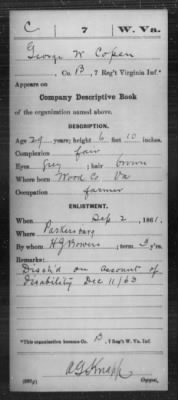 C 7 W. Va.
George W Copen
, Co. B, 7 Reg't Virginia Inf.*
Appears on
Company Descriptive Book
of the organization named above.
DESCRIPTION.
Age 29 years; height 6 feet 10 inches.
Complexion fair
Eyes grey; hair brown
Where born Wood Co Va
Occupation farmer
ENLISTMENT.
When Sep 2, 1861.
Where Parkersburg
By whom H J Bowers; term 3 y'rs.
Remarks:
Disch'd on account of
disability Dec 11/63
*This organization became Co. B, 7 Reg't W. Va. Inf.
A G Knapp
Copyist.